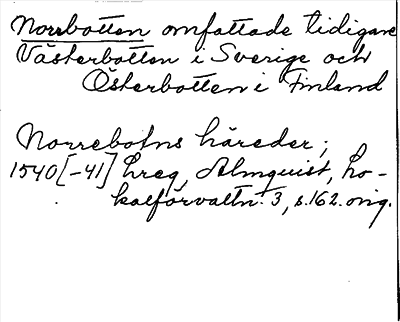 Norrbotten omfattade tidigare
Västerbotten i Sverige och
Österbotten i Finland
Norrebotns häreder;
1540[-41] hreg, Almquist, Lo-
kalförvaltn. 3, s. 162. orig.